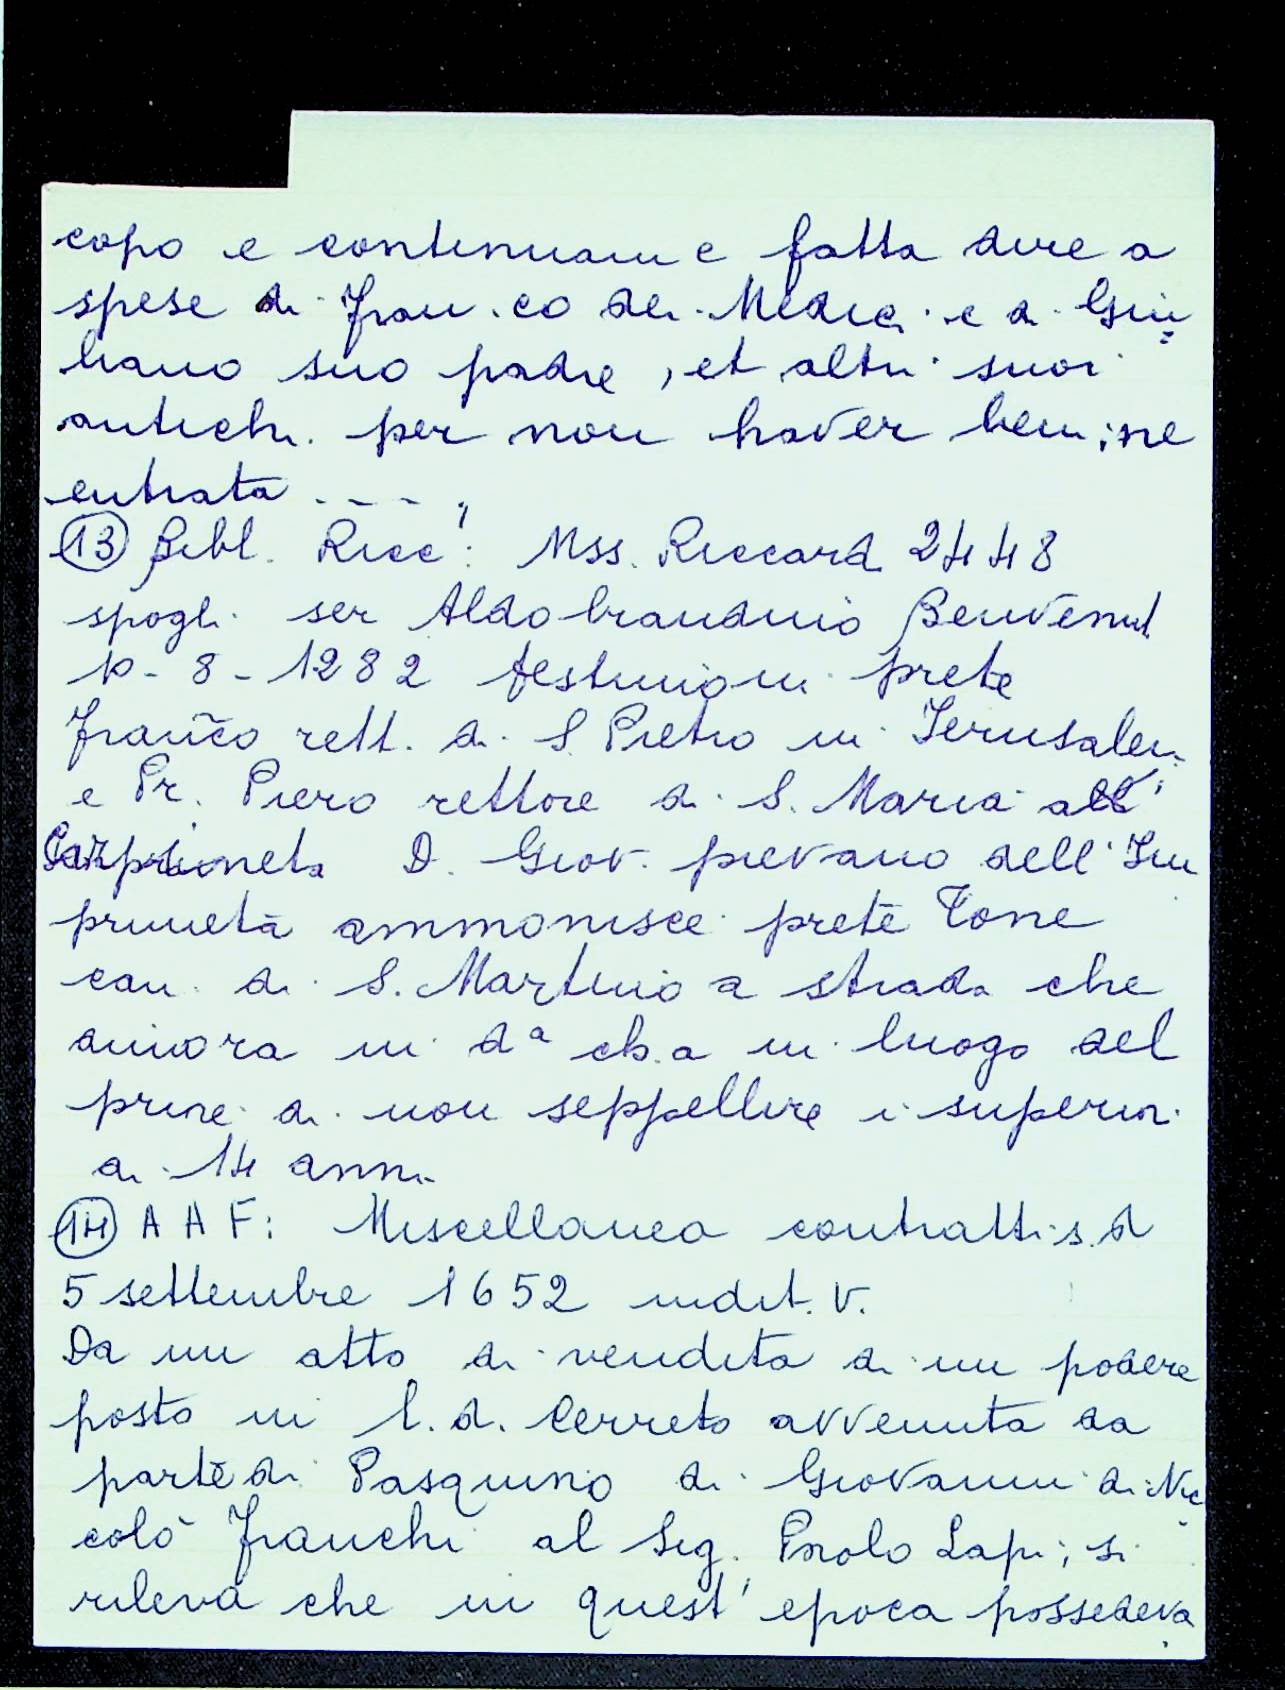 copo e continuam e fatta dire a
spese di Fran.co dei Medici e di Giu=
liano suo padre, et altri suoi
antichi per non haver beni, ne
entrata ....,
13 Bibl. Ricc: Mss. Riccard 2448
spogli ser Aldobrandino Benvenut
10-8-1282 testimoni prete
Franco rett. di S. Pietro in Jerusalem
e Pr. Piero rettore di S. Maria all'
Carpineta D. Giov. pievano dell'Im
pruneta ammonisce prete Tone
can. di S. Martino a strada che
dimora in da ch.a in luogo del
prire di non seppellire i superiori
di 14 anni
14 A A F: Miscellanea contratti s.d
5 settembre 1652 indit. V.
Da un atto di vendita di un podere
posto in l.d. Cerreto avvenuta da
parte di Pasquino di Giovanni di Nic
colò Franchi al Sig. Paolo Lapi, si
rileva che in quest'epoca possedeva